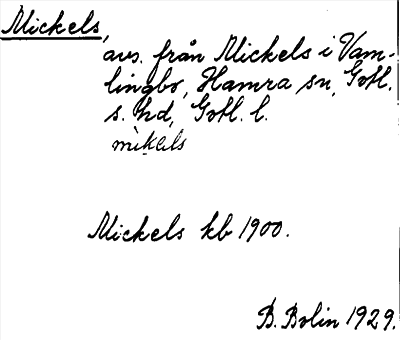 Mickels,
avs. från Mickels i Vam-
lingbo, Hamra sn, Gotl.
s. hd, Gotl. l.
mìkəls
Mickels kb 1900.
B. Bolin 1929.